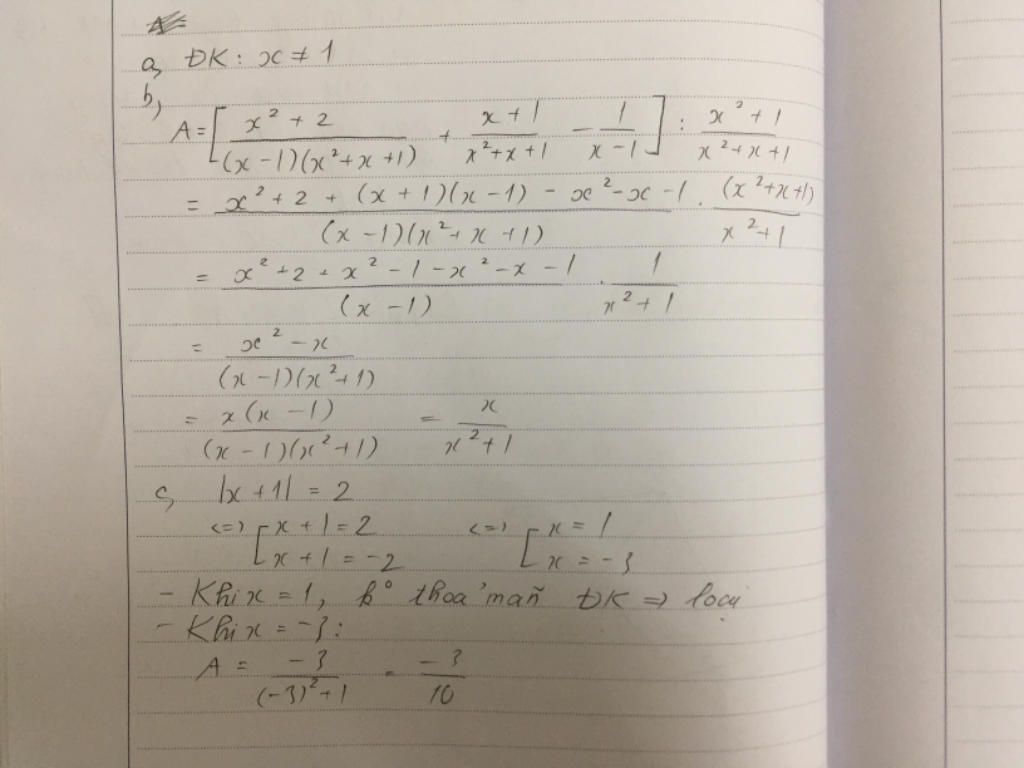 a, ĐK: x ≠ 1
b,
A = [ (x² + 2)/((x - 1)(x² + x + 1)) + (x + 1)/(x² + x + 1) - 1/(x - 1) ] : (x² + 1)/(x² + x + 1)
= (x² + 2 + (x + 1)(x - 1) - x² - x - 1)/((x - 1)(x² + x + 1)) . (x² + x + 1)/(x² + 1)
= (x² + 2 + x² - 1 - x² - x - 1)/(x - 1) . 1/(x² + 1)
= (x² - x)/((x - 1)(x² + 1))
= x(x - 1)/((x - 1)(x² + 1)) = x/(x² + 1)
c, |x + 1| = 2
<=> [ x + 1 = 2 <=> [ x = 1
x + 1 = -2 x = -3
- Khi x = 1, k° thoả mãn ĐK => loại
- Khi x = -3:
A = -3/((-3)² + 1) = -3/10